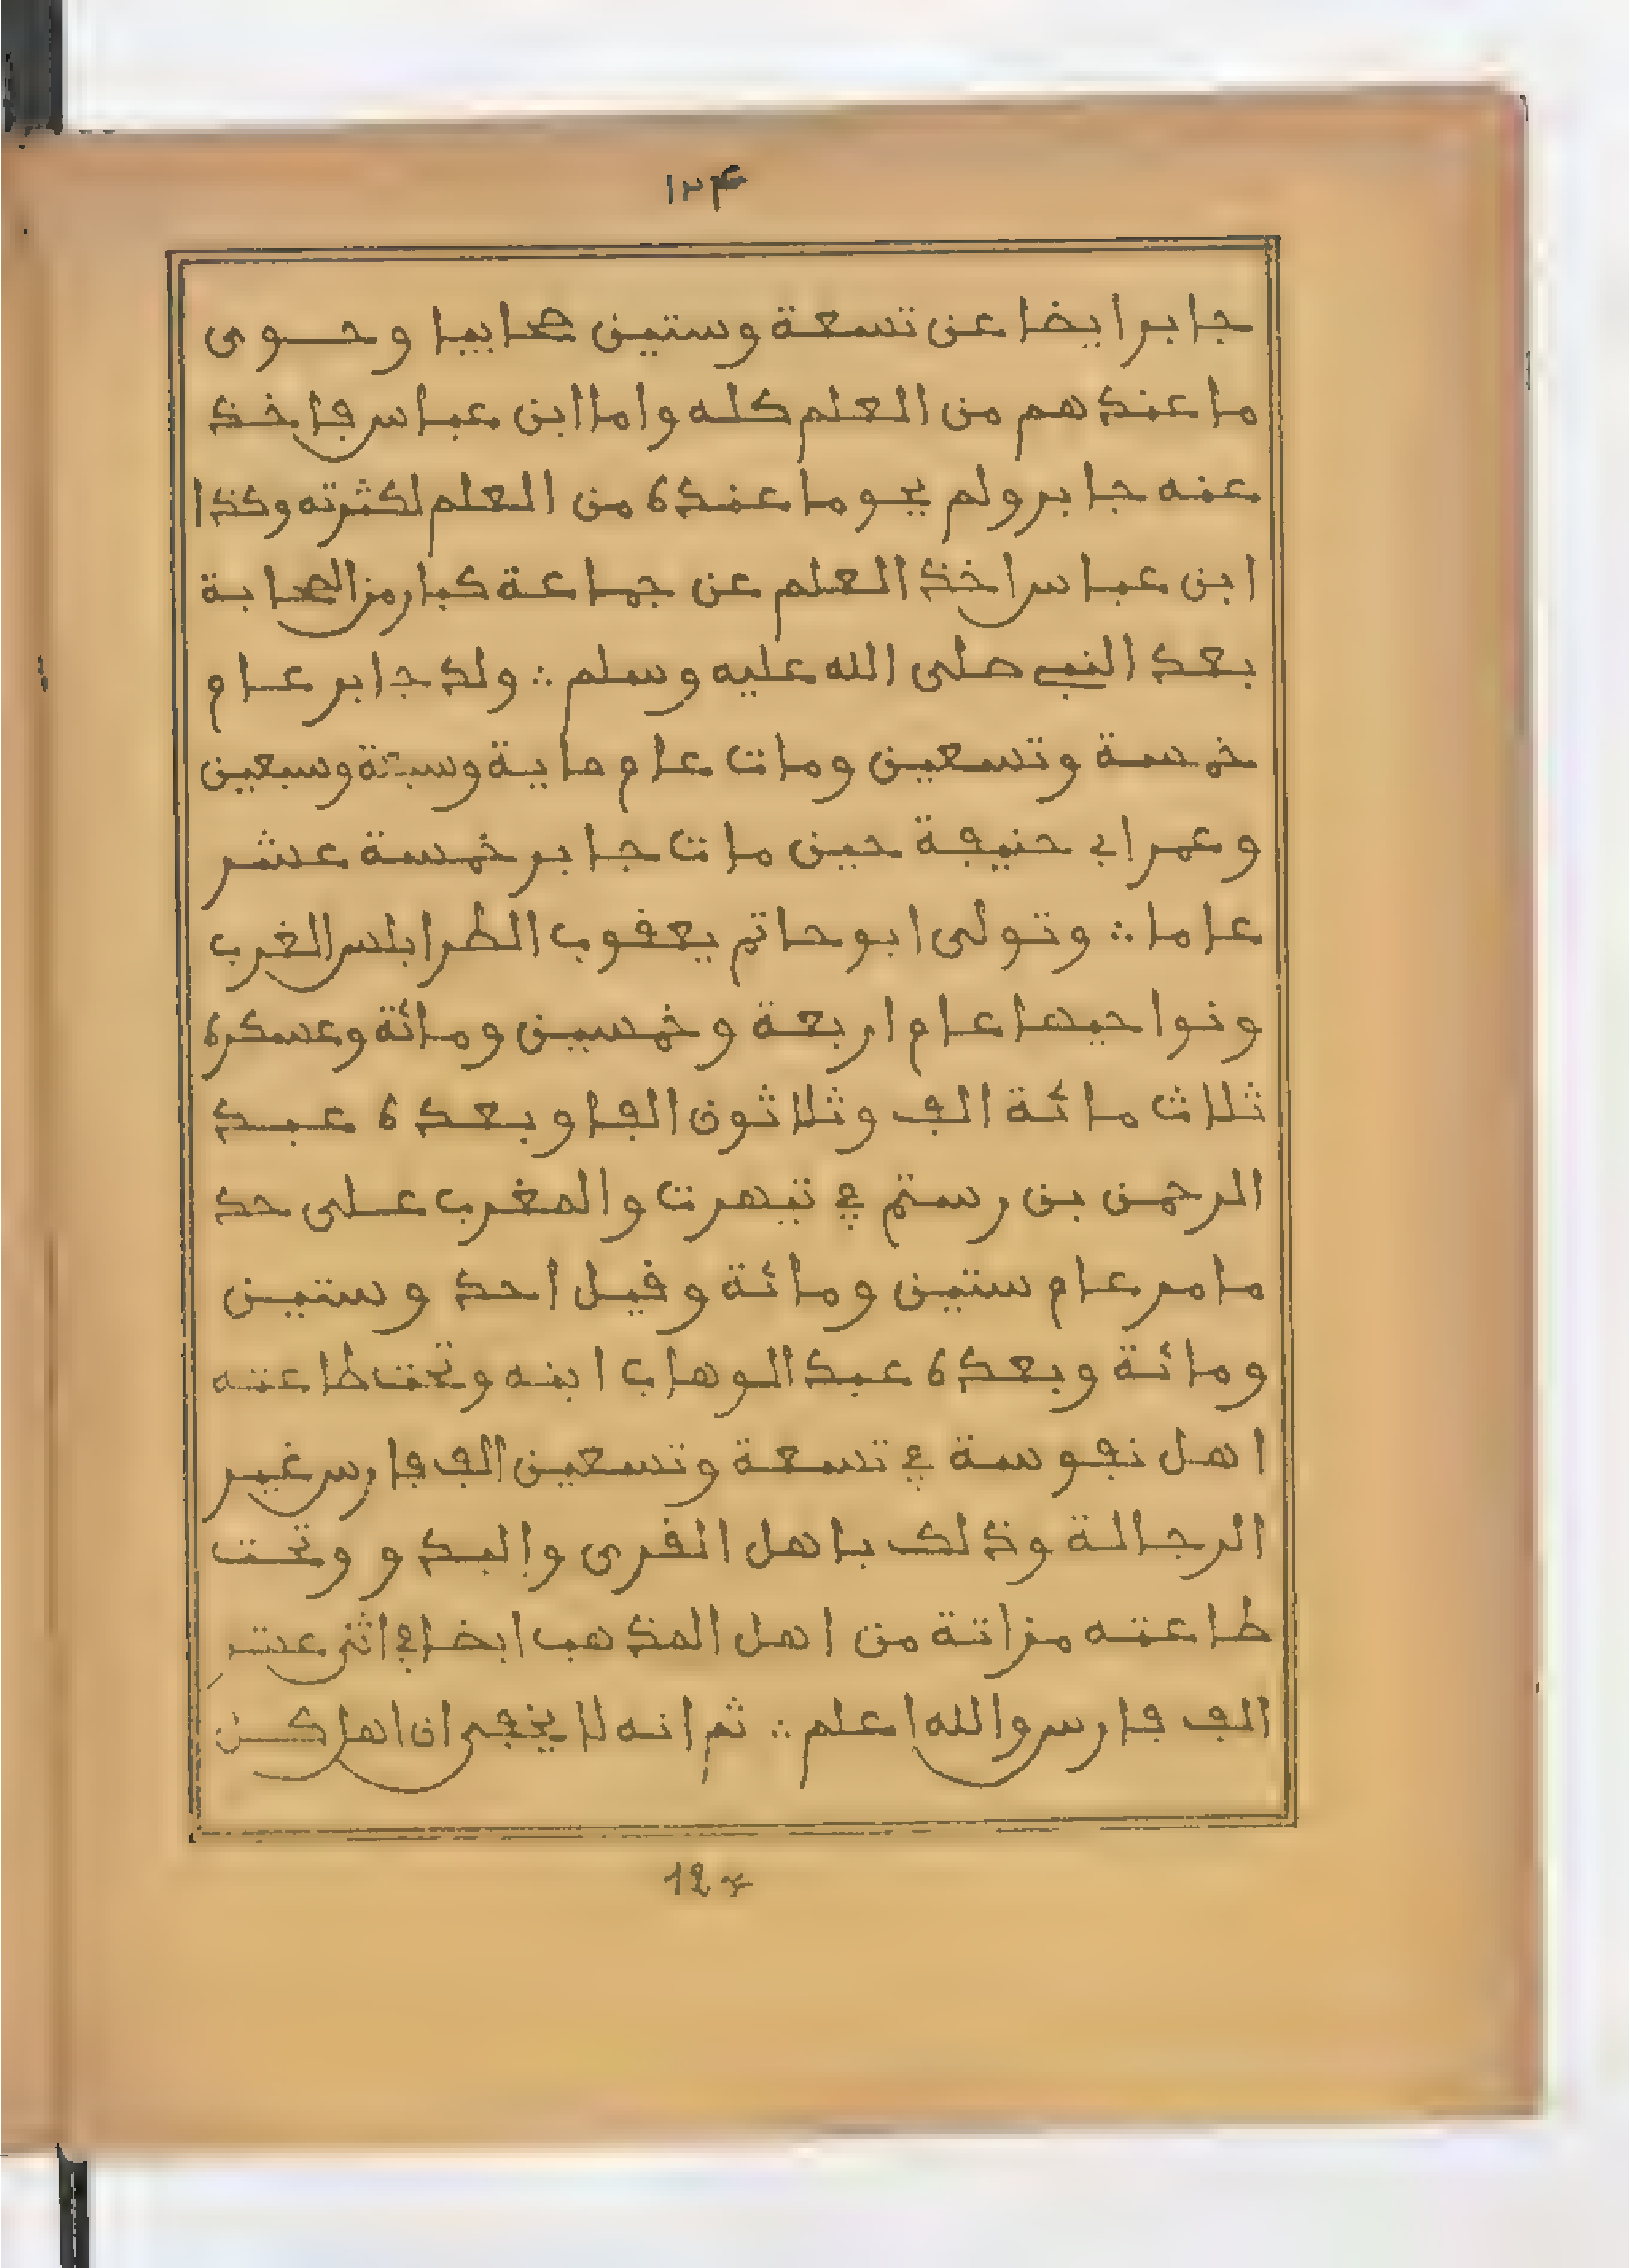 ١٢۴
جابر ايضا عن تسعة وستين صحابيا وحوى
ما عندهم من العلم كله واما ابن عباس ڢاخذ
عنه جابر ولم يحو ما عنده من العلم لكثرته وكذا
ابن عباس اخذ العلم عن جماعة كبار من الصحابة
بعد النبي صلى الله عليه وسلم ∴ ولد جابر عام
خمسة وتسعين ومات عام ماية وستة وسبعين
وعمر ابي حنيڢة حين مات جابر خمسة عشر
عاما ∴ وتولى ابو حاتم يعڧوب الطرابلس الغرب
ونواحيها عام اربعة وخمسين ومائة وعسكره
ثلاث مائة الڢ وثلاثون الڢا وبعده عبد
الرحمن بن رستم ڢي تيهرت والمغرب على حد
ما مر عام ستين ومائة وڧيل احد وستين
ومائة وبعده عبد الوهاب ابنه وتحت طاعته
اهل نڢوسة ڢي تسعة وتسعين الڢ ڢارس غير
الرجالة وذلك باهل الڧرى والبدو وتحت
طاعته مزاتة من اهل المذهب ايضا ڢي اثنى عشر
الڢ ڢارس والله اعلم ∴ ثم انه لا يخڢى ان اهل